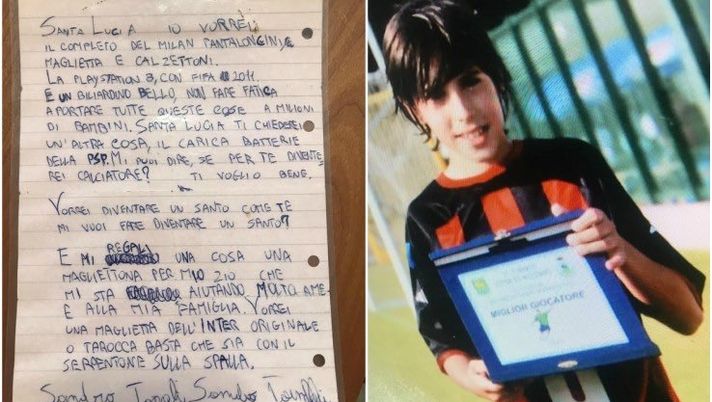 SANTA LUCIA IO VORREI
IL COMPLETO DEL MILAN PANTALONCINI, E
MAGLIETTA E CALZETTONI.
LA PLAYSTATION 3, CON FIFA 2011.
E UN BILIARDINO BELLO, NON FARE FATICA
A PORTARE TUTTE QUESTE COSE A MILIONI
DI BAMBINI. SANTA LUCIA TI CHIEDEREI
UN'ALTRA COSA, IL CARICA BATTERIE
DELLA PSP. MI PUOI DIRE, SE PER TE DIVENTE-
REI CALCIATORE? TI VOGLIO BENE.
VORREI DIVENTARE UN SANTO COME TE
MI VUOI FARE DIVENTARE UN SANTO?
E MI REGALI UNA COSA UNA
MAGLIETTONA PER MIO ZIO CHE
MI STA AIUTANDO MOLTO A ME
E ALLA MIA FAMIGLIA. VORREI
UNA MAGLIETTA DELL'INTER ORIGINALE
O TAROCCA BASTA CHE SIA CON IL
SERPENTONE SULLA SPALLA.
Sandro Tonali Sandro Tonali
MIGLIOR GIOCATORE